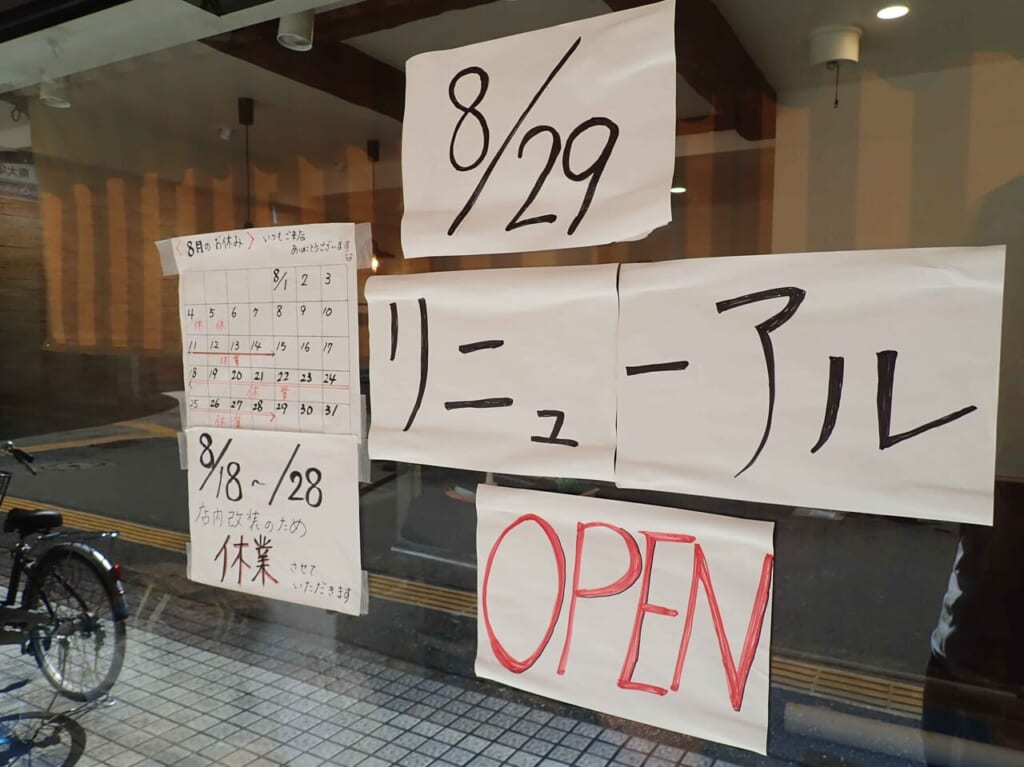 8/29
リニューアル
OPEN
〈8月のお休み〉 いつもご来店
ありがとうございます
8/1 2 3
4 5 6 7 8 9 10
休 休
11 12 13 14 15 16 17
休業
18 19 20 21 22 23 24
休業
25 26 27 28 29 30 31
休業
8/18～/28
店内改装のため
休業 させて
いただきます